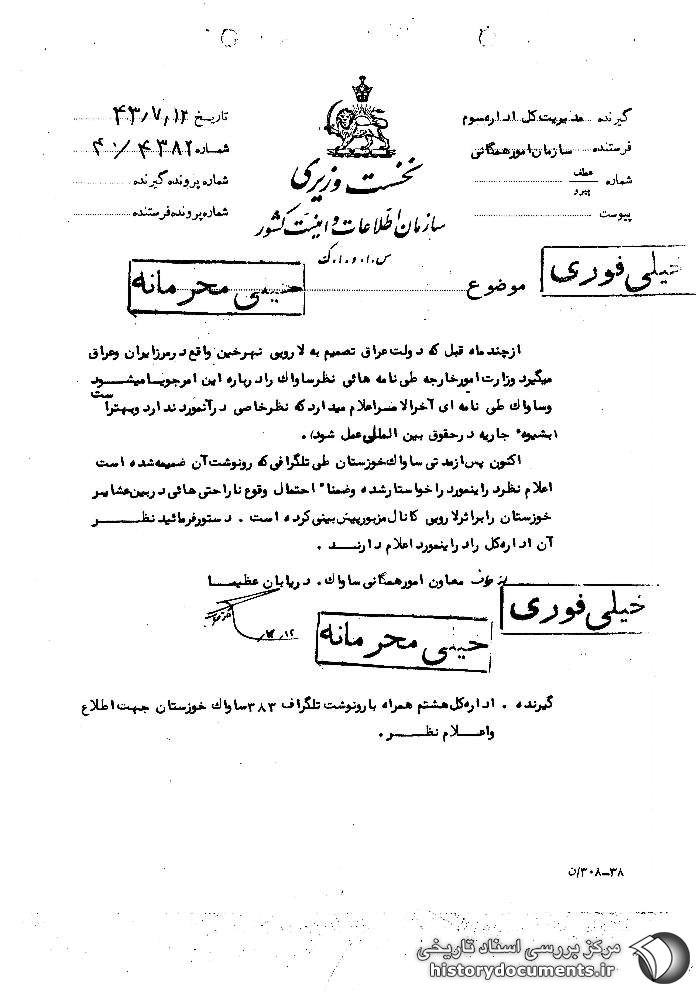 گیرنده مدیریت کل اداره سوم
فرستنده سازمان امور همگانی
شماره عطف پیرو
پیوست
نخست وزیری
سازمان اطلاعات و امنیت کشور
س.ا.و.ا.ک
تاریخ ۴۳/۷/۱۲
شماره ۴۰/۴۳۸۲
شماره پرونده گیرنده
شماره پرونده فرستنده
خیلی فوری
موضوع
خیلی محرمانه
ازچند ماه قبل که دولت عراق تصمیم به لاروبی نهرخین واقع درمرزایران وعراق
میگیرد وزارت امورخارجه طی نامه هائی نظرساواک رادرباره این امرجویامیشود
وساواک طی نامه ای آخرالامر اعلام میداردکه نظرخاصی درآنمورد ندارد وبهتراست
(بشیوه جاریه درحقوق بین المللی عمل شود).
اکنون پس ازمدتی ساواک خوزستان طی تلگرافی که رونوشت آن ضمیمه شده است
اعلام نظرد راینمورد راخواستارشده وضمناً احتمال وقوع ناراحتی هائی دربین عشایر
خوزستان رابراثرلاروبی کانال مزبورپیش بینی کرده است . دستورفرمائید نظر
آن اداره کل راد راینمورد اعلام دارند .
از طرف معاون امورهمگانی ساواک . دریابان عظیما
۷/۱۲
خیلی فوری
خیلی محرمانه
گیرنده . اداره کل هشتم همراه بارونوشت تلگراف ۳۸۳ ساواک خوزستان جهت اطلاع
واعلام نظر .
۳۸-۳۰۸/ن
مرکز بررسی اسناد تاریخی
historydocuments.ir